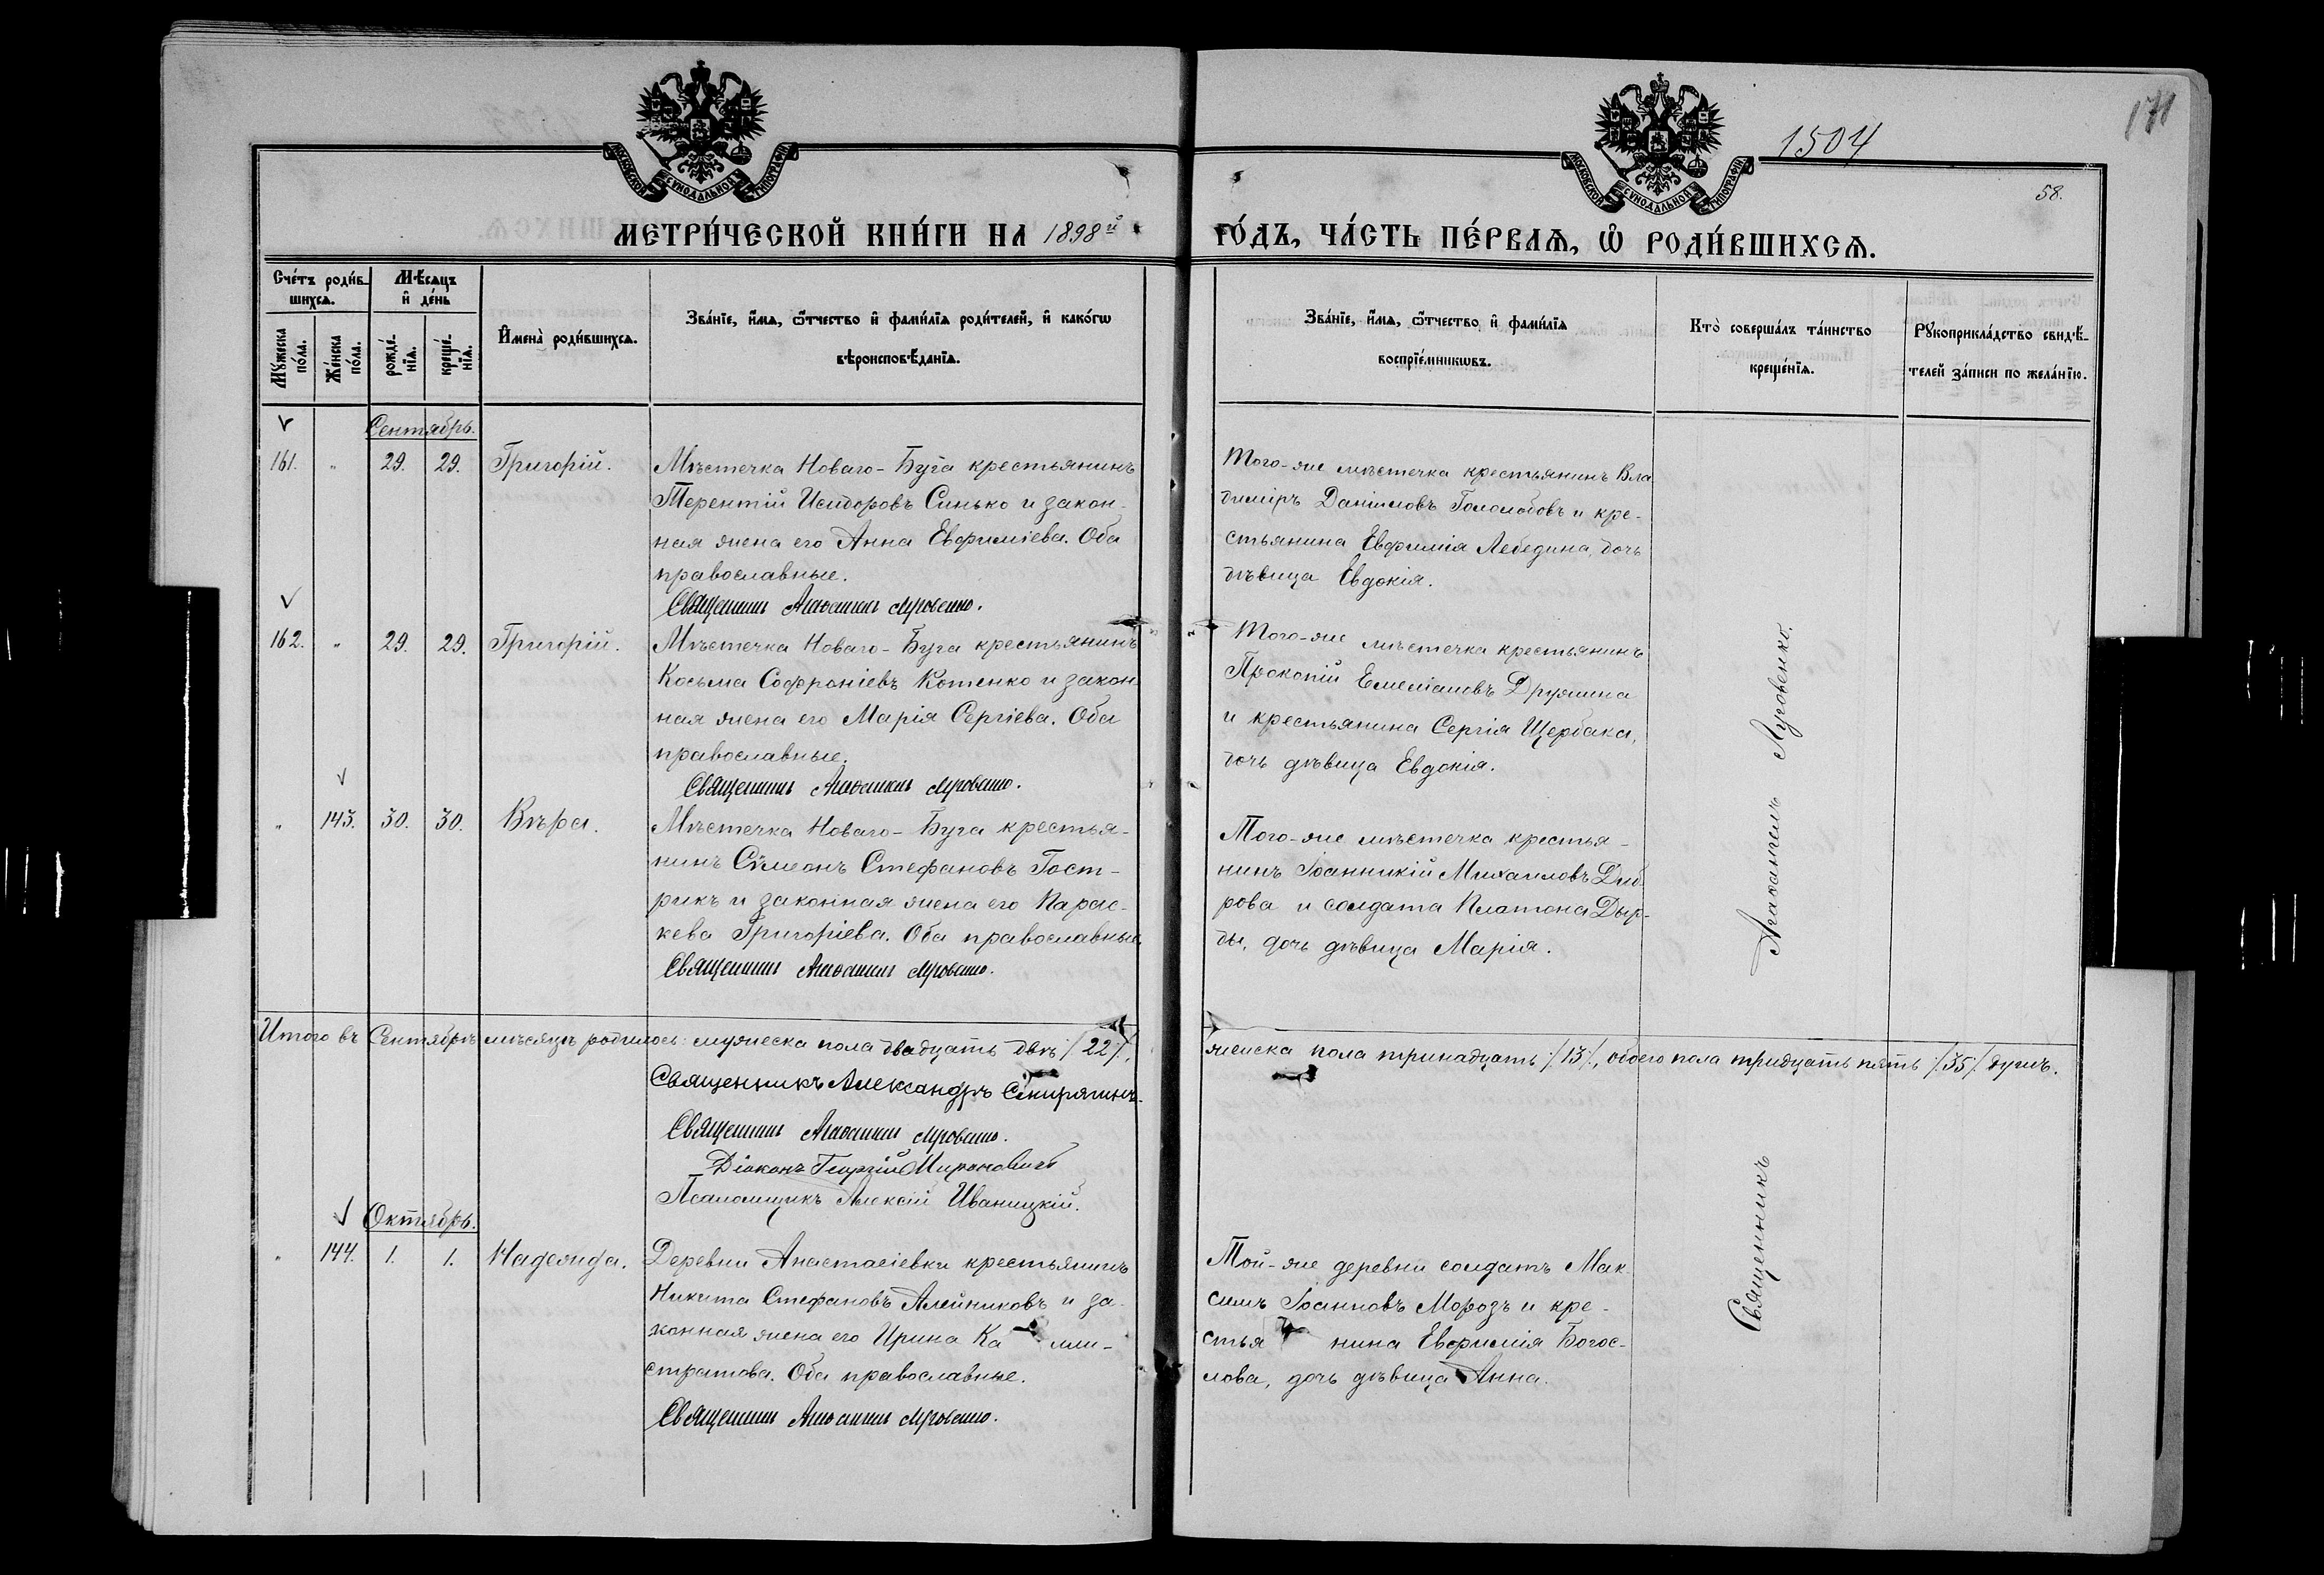 171
1504
58.
МОСКОВСКОЙ СѴНОДАЛЬНОЙ ТИПОГРАФІИ
МОСКОВСКОЙ СѴНОДАЛЬНОЙ ТИПОГРАФІИ
МЕТРИ́ЧЕСКОЙ КНИ́ГИ НА 1898й
ГО́ДЪ, ЧА́СТЬ ПЕ́РВАѦ, Ѡ҆ РОДИ́ВШИХСѦ.
Сче́тъ роди́в-
шихсѧ.
Мꙋ́жеска по́ла.
Же́нска по́ла.
Мѣ́сѧцъ
и҆ де́нь
рожде́-
нїѧ.
креще́-
нїѧ.
И҆мена̀ роди́вшихсѧ.
Зва́нїе, и҆́мѧ, ѻ҆́тчество и҆ фами́лїѧ роди́телей, и҆ како́гѡ
вѣроисповѣ́данїѧ.
Зва́нїе, и҆́мѧ, ѻ҆́тчество и҆ фами́лїѧ
воспрїе́мникѡвъ.
Кто̀ соверша́лъ та́инство
креще́нїѧ.
Рꙋкоприкла́дство свидѣ́-
телей за́писи по жела́нїю.
Сентябрь.
161. " 29. 29. Григорій.
Мѣстечка Новаго-Буга крестьянинъ
Терентій Исидоровъ Синько и закон-
ная жена его Анна Евфиміева. Оба
православные.
Священникъ Агафангелъ Луговенко.
Того-же мѣстечка крестьянинъ Вла
диміръ Даніиловъ Гололобовъ и кре-
стьянина Евфимія Лебедина, дочь
дѣвица Евдокія.
162. " 29. 29. Григорій.
Мѣстечка Новаго-Буга крестьянинъ
Косьма Софроніевъ Котенко и закон-
ная жена его Марія Сергіева. Оба
православные.
Священникъ Агафангелъ Луговенко.
Того-же мѣстечка крестьянинъ
Прокопій Емеліановъ Дружина
и крестьянина Сергія Щербака,
дочь дѣвица Евдокія.
" 143. 30. 30. Вѣра.
Мѣстечка Новаго-Буга крестья-
нинъ Сѵмеонъ Стефановъ Гост-
рикъ и законная жена его Парас-
кева Григоріева. Оба православные.
Священникъ Агафангелъ Луговенко.
Того-же мѣстечка крестья-
нинъ Іоанникій Михаиловъ Диб-
рова и солдата Платона Дыр-
ды, дочь дѣвица Марія.
Итого въ Сентябрѣ мѣсяцѣ родилось: мужеска пола двадцать два /22/,
женска пола тринадцать /13/, обоего пола тридцать пять /35/ душъ.
Священникъ Александръ
Священникъ Агафангелъ Луговенко.
Діаконъ Георгій Мироновичъ
Псаломщикъ Алексій Иваницкій.
Октябрь.
" 144. 1. 1. Надежда.
Деревни Анастасіевки крестьянинъ
Никита Стефановъ Алейниковъ и за-
конная жена его Ирина Ка ли-
стратова. Оба православные.
Священникъ Агафангелъ Луговенко.
Той-же деревни солдатъ Мак
симъ Іоанновъ Морозъ и кре-
стья нина Евфимія Богос-
лова, дочь дѣвица Анна.
Священникъ Агафангелъ Луговенко.